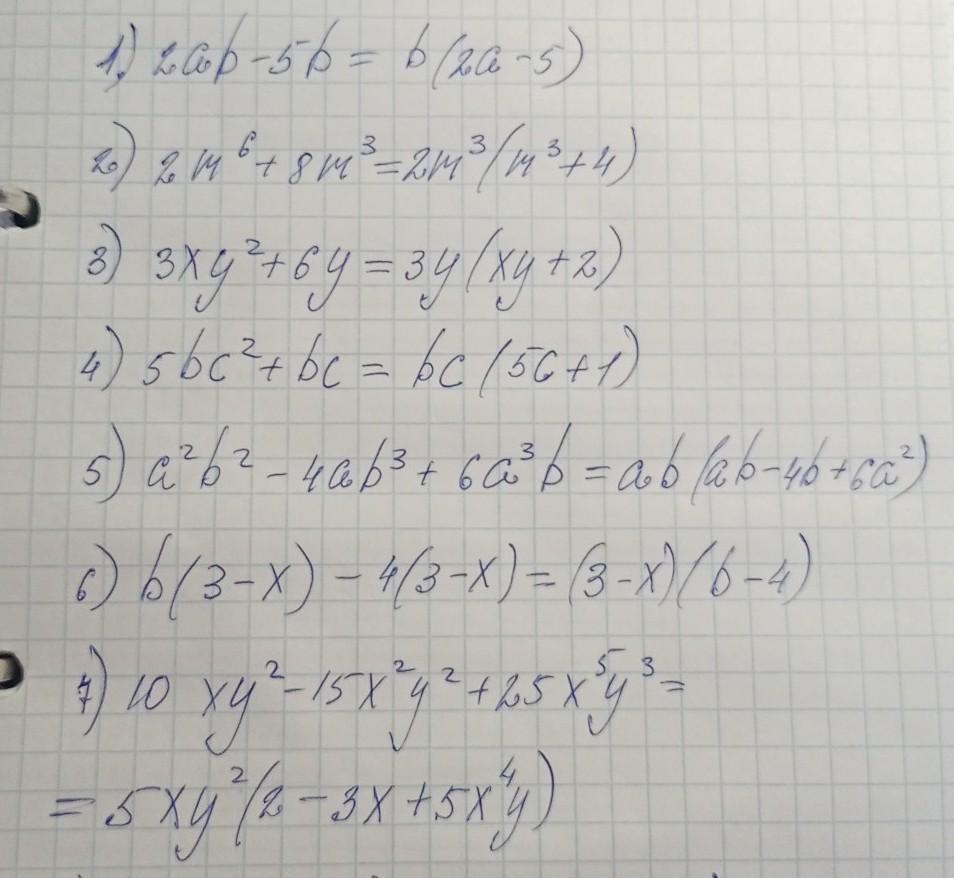 1) 2ab-5b = b(2a-5)
2) 2m⁶+8m³=2m³(m³+4)
3) 3xy²+6y=3y(xy+2)
4) 5bc²+bc = bc(5c+1)
5) a²b²-4ab³+6a³b=ab(ab-4b+6a²)
6) b(3-x)-4(3-x)=(3-x)(b-4)
7) 10 xy²-15x²y²+25x⁵y³=
=5xy²(2-3x+5x⁴y)